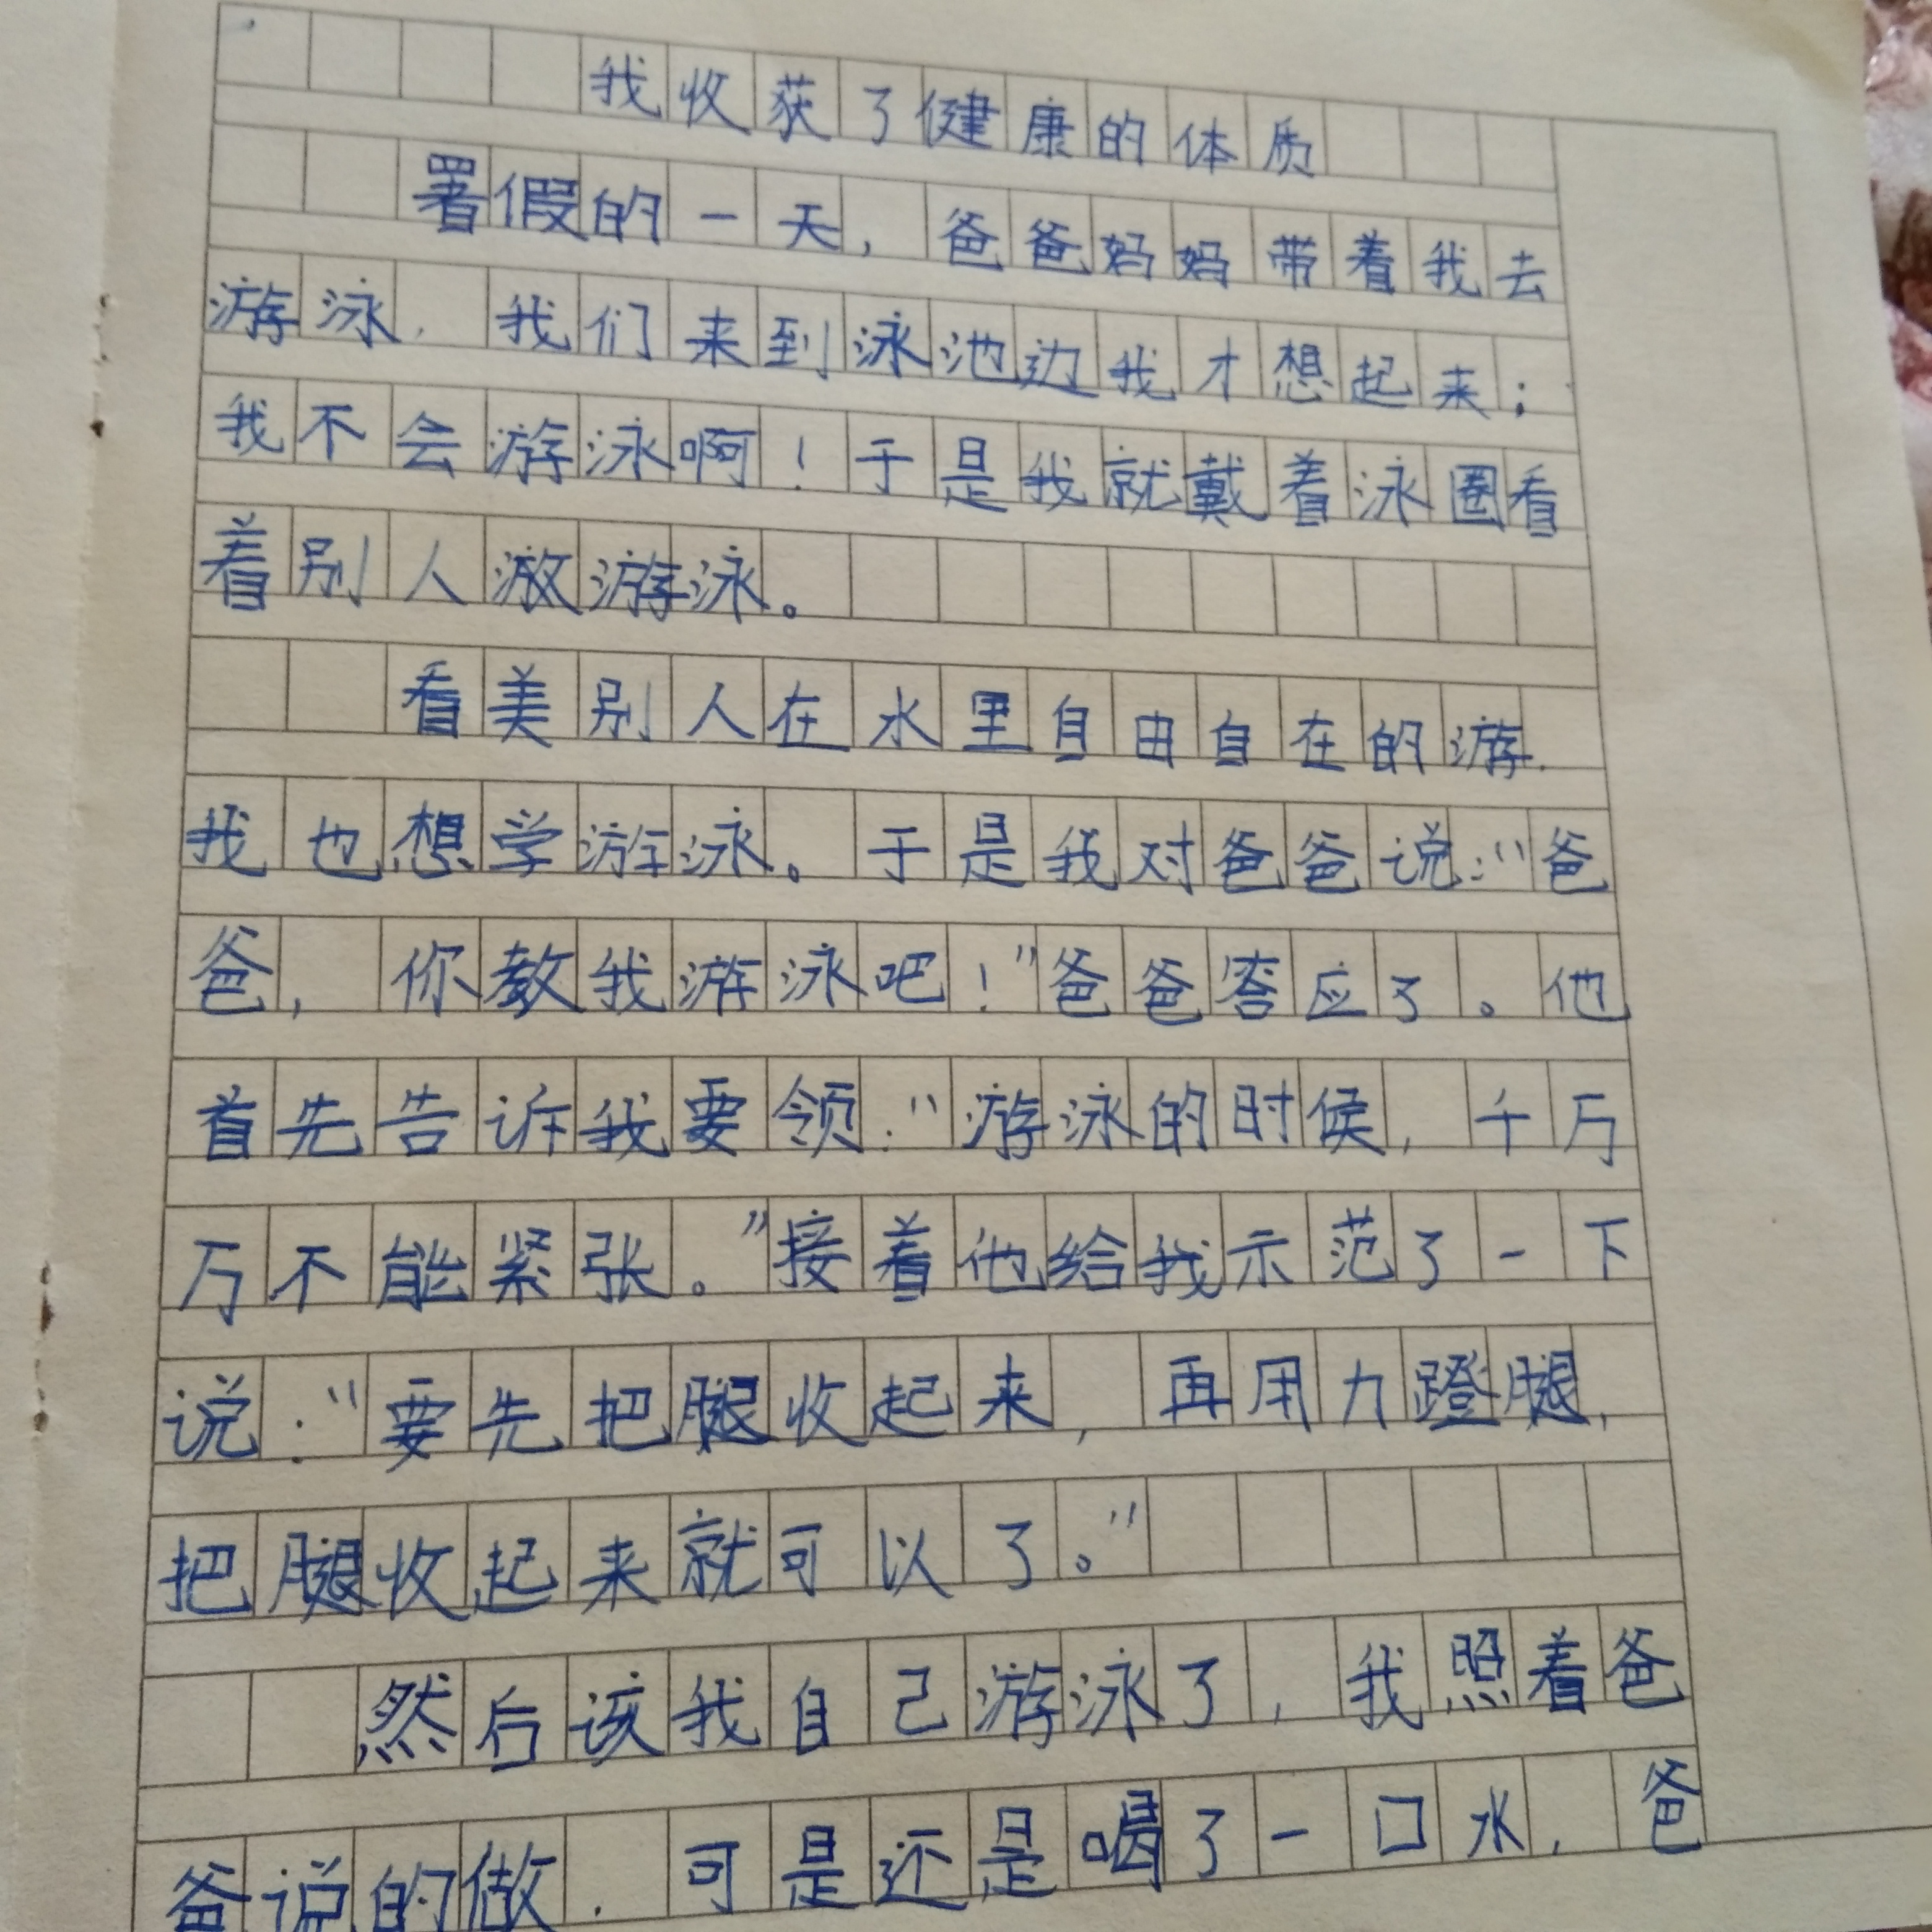 我收获了健康的体质
署假的一天，爸爸妈妈带着我去
游泳，我们来到泳池边我才想起来；
我不会游泳啊！于是我就戴着泳圈看
着别人游泳。
看美别人在水里自由自在的游，
我也想学游泳。于是我对爸爸说：“爸
爸，你教我游泳吧！”爸爸答应了。他
首先告诉我要领：“游泳的时候，千万
万不能紧张。”接着他给我示范了一下
说：“要先把腿收起来，再用力蹬腿，
把腿收起来就可以了。”
然后该我自己游泳了，我照着爸
爸说的做，可是还是喝了一口水，爸